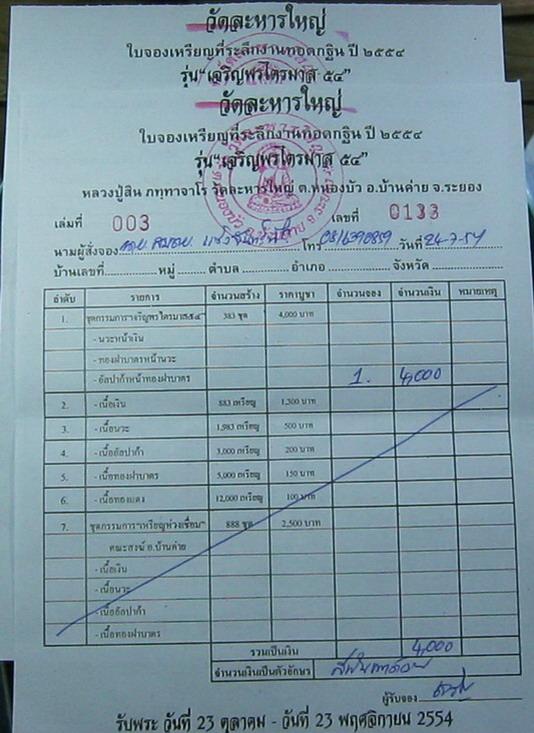 วัดละหารใหญ่
ใบจองเหรียญที่ระลึกงานทอดกฐิน ปี ๒๕๕๔
รุ่น“เจริญพรไตรมาส ๕๔”
วัดละหารใหญ่
ใบจองเหรียญที่ระลึกงานทอดกฐิน ปี ๒๕๕๔
รุ่น“เจริญพรไตรมาส ๕๔”
หลวงปู่สิน ภทฺทาจาโร วัดละหารใหญ่ ต.หนองบัว อ.บ้านค่าย จ.ระยอง
เล่มที่ 003 เลขที่ 0133
นามผู้สั่งจอง โทร 0816390859 วันที่ 24-7-54
บ้านเลขที่ หมู่ ตำบล อำเภอ จังหวัด
ลำดับ รายการ จำนวนสร้าง ราคาบูชา จำนวนจอง จำนวนเงิน หมายเหตุ
1. ชุดกรรมการเจริญพรไตรมาส๕๔ 383 ชุด 4,000 บาท
- นวะหน้าเงิน
- ทองฝาบาตรหน้านวะ
- อัลปาก้าหน้าทองฝาบาตร 1. 4,000
2. - เนื้อเงิน 883 เหรียญ 1,300 บาท
3. - เนื้อนวะ 1,983 เหรียญ 500 บาท
4. - เนื้ออัลปาก้า 3,000 เหรียญ 200 บาท
5. - เนื้อทองฝาบาตร 5,000 เหรียญ 150 บาท
6. - เนื้อทองแดง 12,000 เหรียญ 100 บาท
7. ชุดกรรมการ“เหรียญห่วงเชื่อม” 888 ชุด 2,500 บาท
คณะสงฆ์ อ.บ้านค่าย
- เนื้อเงิน
- เนื้อนวะ
- เนื้ออัลปาก้า
- เนื้อทองฝาบาตร
รวมเป็นเงิน 4,000
จำนวนเงินเป็นตัวอักษร
ผู้รับจอง
รับพระ วันที่ 23 ตุลาคม - วันที่ 23 พฤศจิกายน 2554